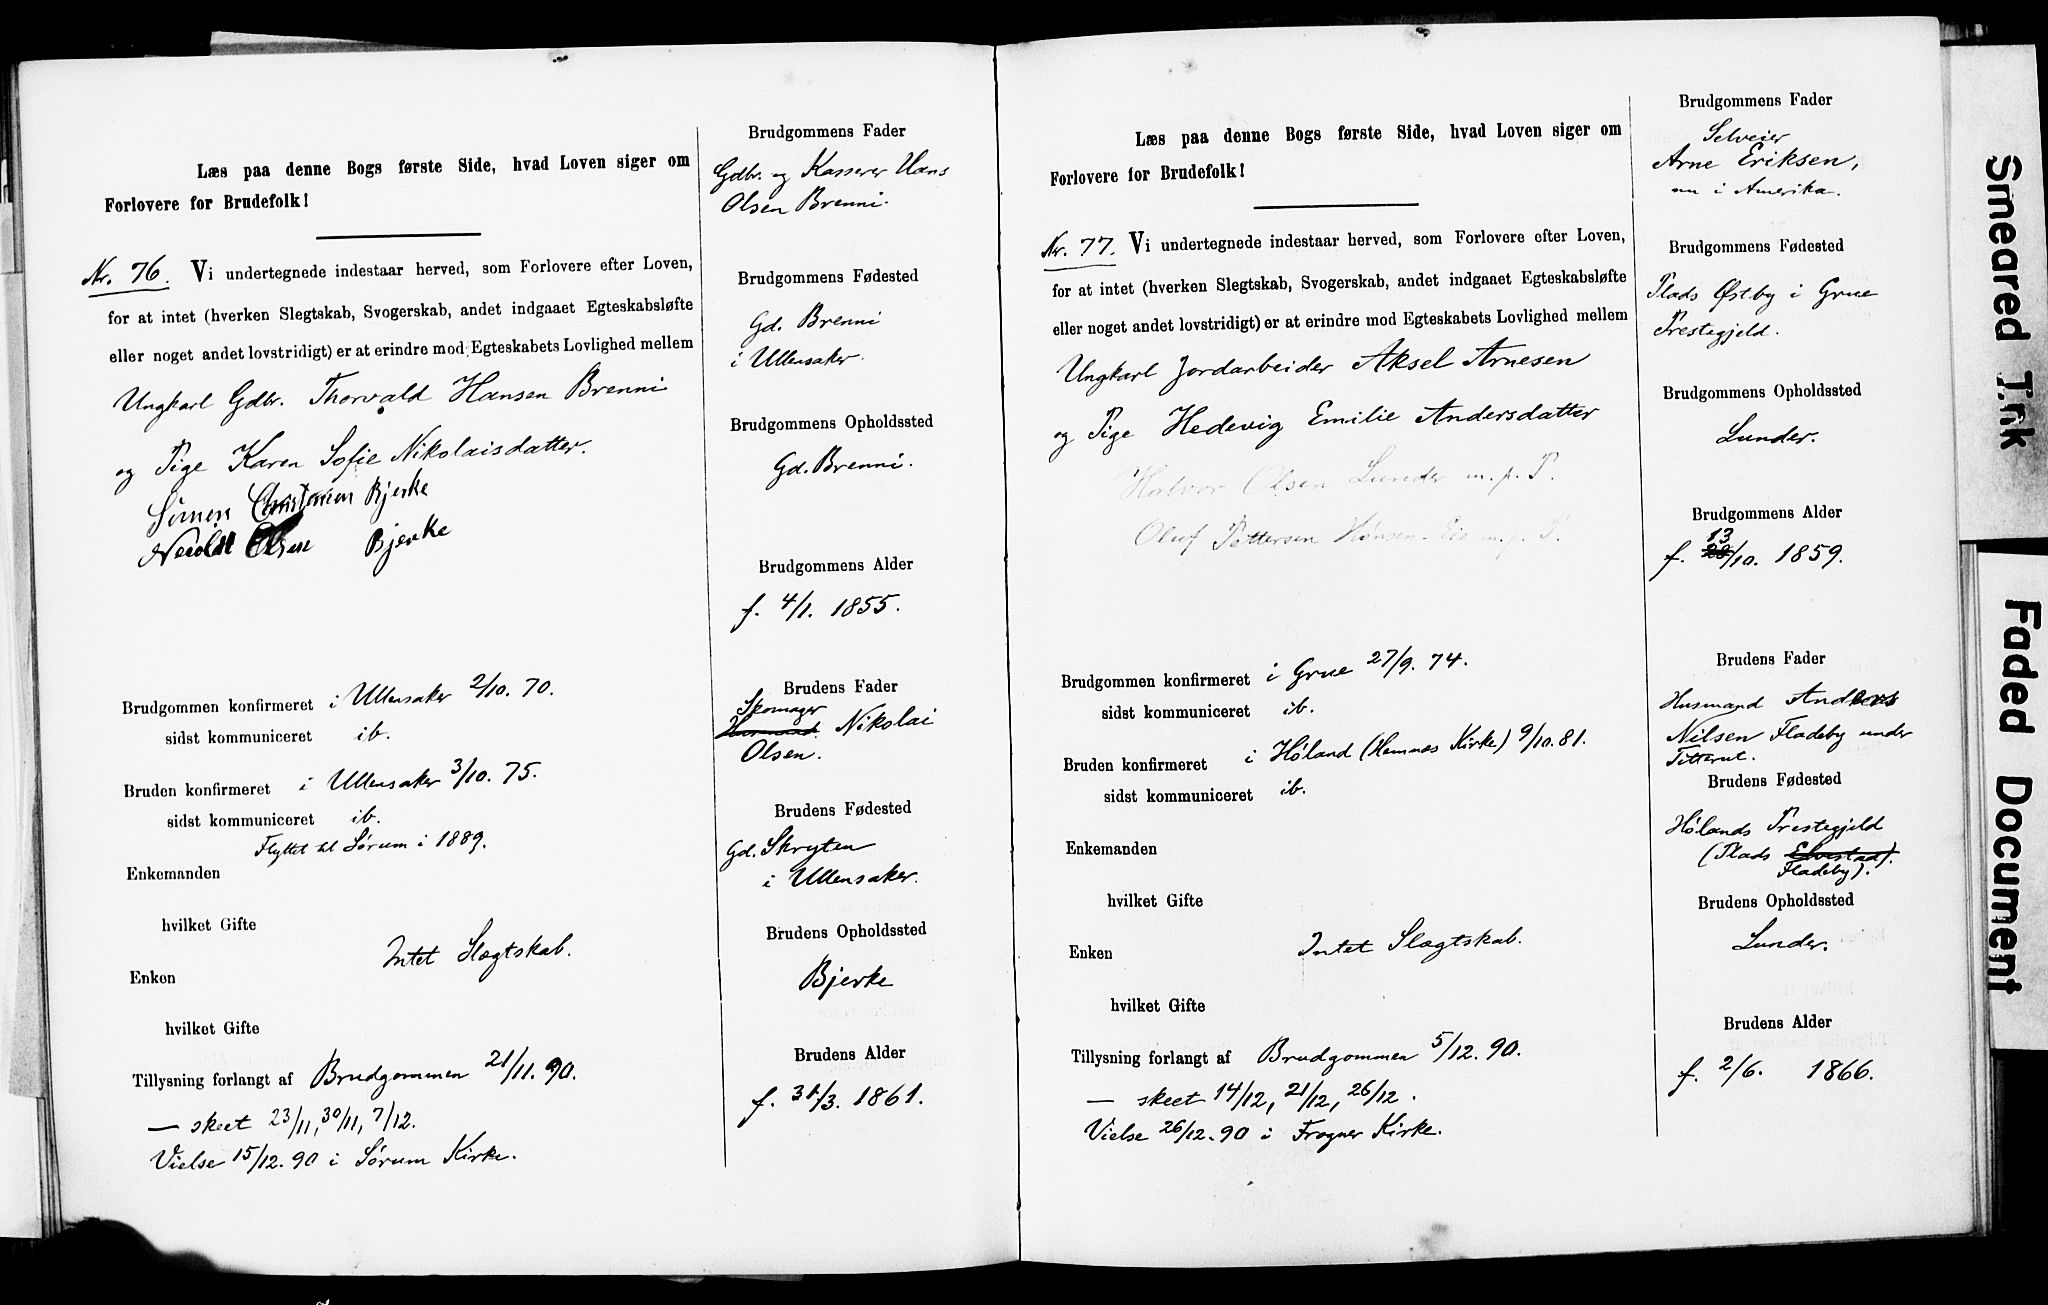 Læs paa denne Bogs første Side, hvad Loven siger om
Forlovere for Brudefolk!
Nr. 76. Vi undertegnede indestaar herved, som Forlovere efter Loven,
for at intet (hverken Slegtskab, Svogerskab, andet indgaaet Egteskabsløfte
eller noget andet lovstridigt) er at erindre mod Egteskabets Lovlighed mellem
Ungkarl Gdbr. Thorvald Hansen Brenni
og Pige Karen Sofie Nikolaisdatter.
Simen Bjerke
Olsen Bjerke
Brudgommen konfirmeret i Ullensaker 2/10. 70.
sidst kommuniceret ib.
Bruden konfirmeret i Ullensaker 3/10. 75.
sidst kommuniceret ib.
Flyttet til Sørum i 1889.
Enkemanden
hvilket Gifte
Intet Slægtskab.
Enken
hvilket Gifte
Tillysning forlangt af Brudgommen 21/11. 90.
— skeet 23/11, 30/11, 7/12.
Vielse 15/12. 90 i Sørum Kirke.
Brudgommens Fader
Gdbr. og Kasserer Hans
Olsen Brenni.
Brudgommens Fødested
Gd. Brenni
i Ullensaker.
Brudgommens Opholdssted
Gd. Brenni.
Brudgommens Alder
f. 4/1. 1855.
Brudens Fader
Skomager
Husmand Nikolai
Olsen.
Brudens Fødested
Gd. Skryten
i Ullensaker.
Brudens Opholdssted
Bjerke
Brudens Alder
f. 31/3. 1861.
Læs paa denne Bogs første Side, hvad Loven siger om
Forlovere for Brudefolk!
Nr. 77. Vi undertegnede indestaar herved, som Forlovere efter Loven,
for at intet (hverken Slegtskab, Svogerskab, andet indgaaet Egteskabsløfte
eller noget andet lovstridigt) er at erindre mod Egteskabets Lovlighed mellem
Ungkarl Jordarbeider Aksel Arnesen
og Pige Hedevig Emilie Andersdatter
Halvor Olsen Lunder m. p. P.
Oluf Pettersen Hønsen-Eie m. p. P.
Brudgommen konfirmeret i Grue 27/9. 74.
sidst kommuniceret ib.
Bruden konfirmeret i Høland (Hemnæs Kirke) 9/10. 81.
sidst kommuniceret ib.
Enkemanden
hvilket Gifte
Enken Intet Slægtskab.
hvilket Gifte
Tillysning forlangt af Brudgommen 5/12. 90.
— skeet 14/12, 21/12, 26/12.
Vielse 26/12. 90 i Frogner Kirke.
Brudgommens Fader
Selveier
Arne Eriksen,
nu i Amerika.
Brudgommens Fødested
Plads Østby i Grue
Prestegjeld.
Brudgommens Opholdssted
Lunder.
Brudgommens Alder
13
f. 28/10. 1859.
Brudens Fader
Husmand Anders
Nilsen Fladeby under
Brudens Fødested
Hølands Prestegjeld
(Plads Elvestad).
Fladeby).
Brudens Opholdssted
Lunder.
Brudens Alder
f. 2/6. 1866.
Smeared Ink
Faded Document